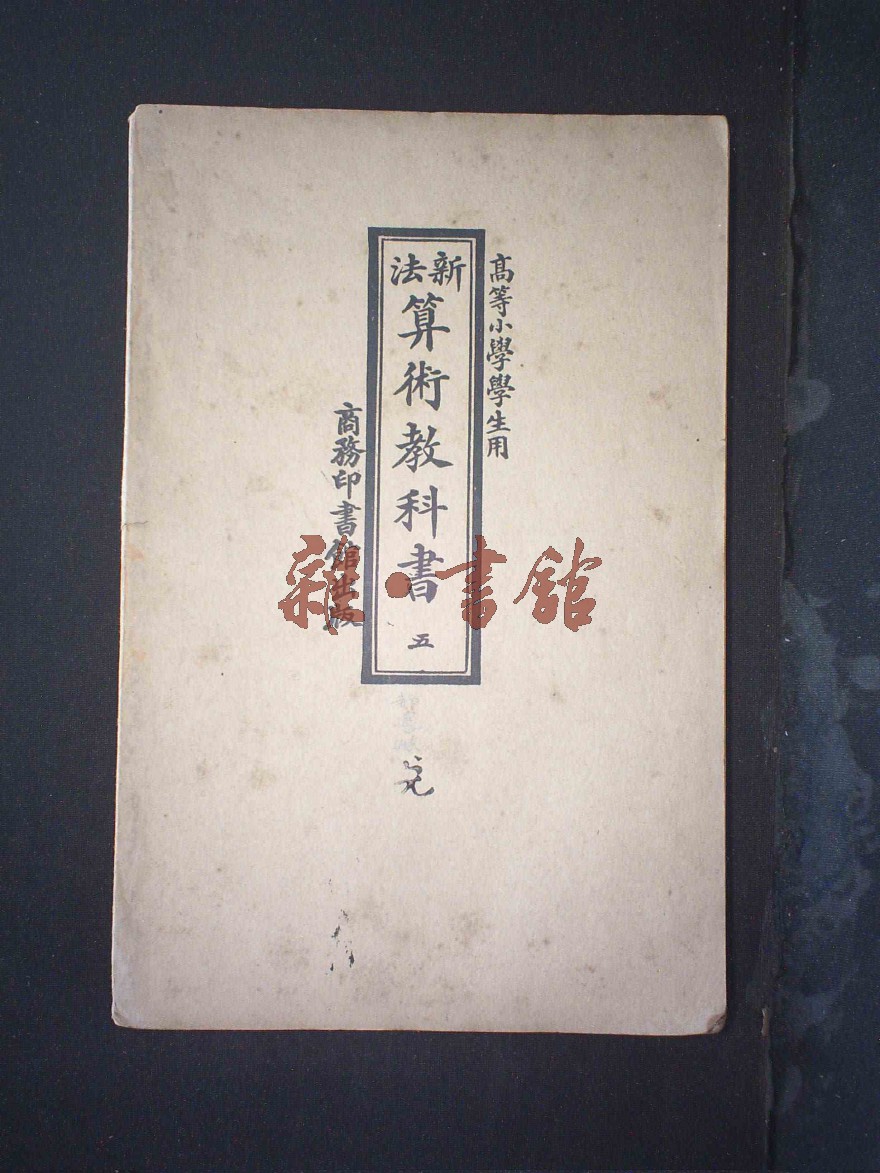 高等小學學生用
新法
算術教科書 五
商務印書館出版
雜·書館